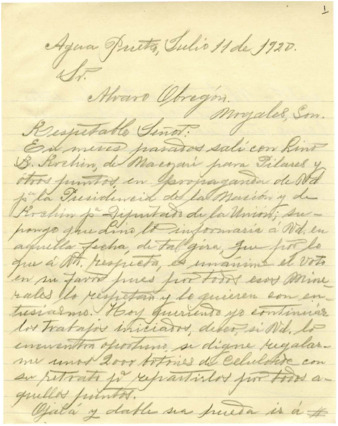 1
Agua Prieta, Julio 11 de 1920.
Sr.
Alvaro Obregón.
Nogales, Son.
Respetable Señor:
En meses pasados salí con Lino
B. Rochín, de Nacozari para Pilares y
otros puntos, en propaganda de Ud.
pª la Presidencia de la Nación y de
Rochín pª Diputado de la Unión; su-
pongo que Lino lo informaría a Ud. en
aquella fecha, de tal gira, que por lo
que á Ud. respecta, es unánime el voto
en su favor pues por todos esos Mine-
rales lo respetan y lo quieren con en-
tusiasmo. Hoy queriendo yo continuar
los trabajos iniciados, deseo, si Ud. lo
encuentra oportuno, se digne regalar-
me unos 2000 botones de Celuloide con
su retrato pª repartirlos por todos a-
quellos puntos.
Ojalá y dable sea pueda ir á